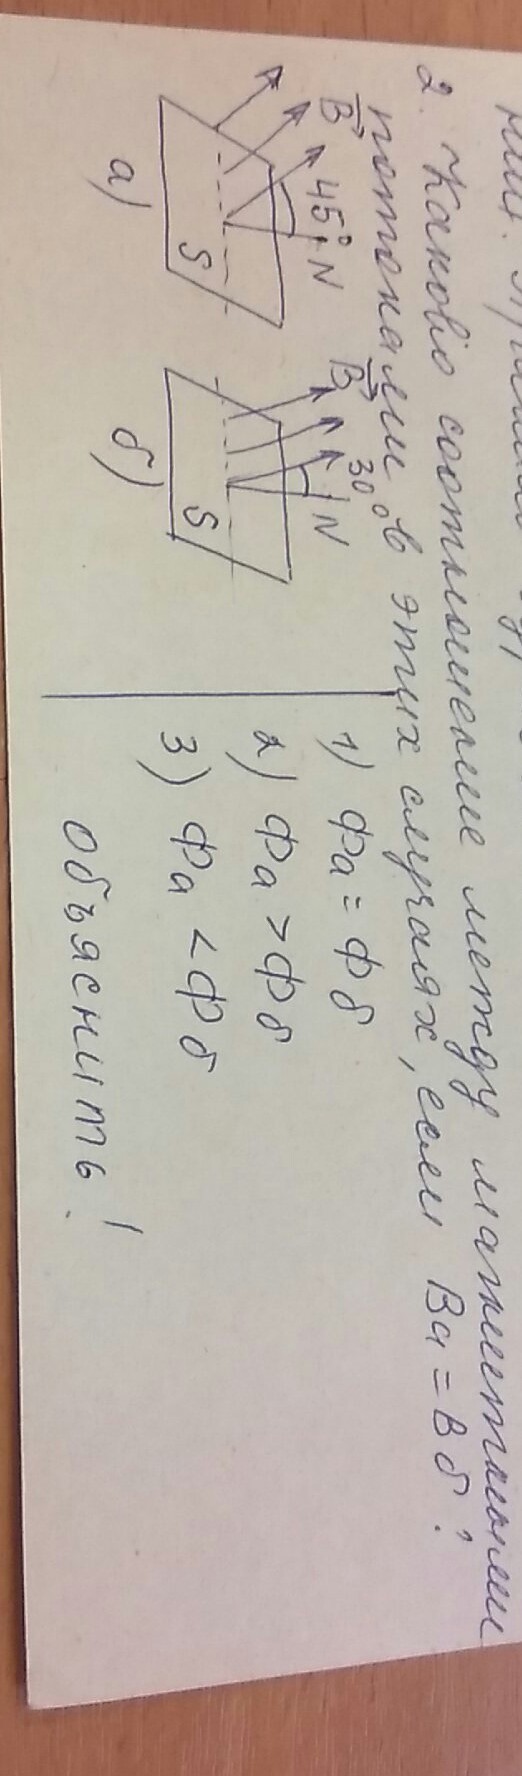 2. Каково соотношение между магнитными
потоками в этих случаях, если Bа = Bб?
B 45° N
S
а)
B 30° N
S
б)
1) Фа = Фб
2) Фа > Фб
3) Фа < Фб
объяснить!